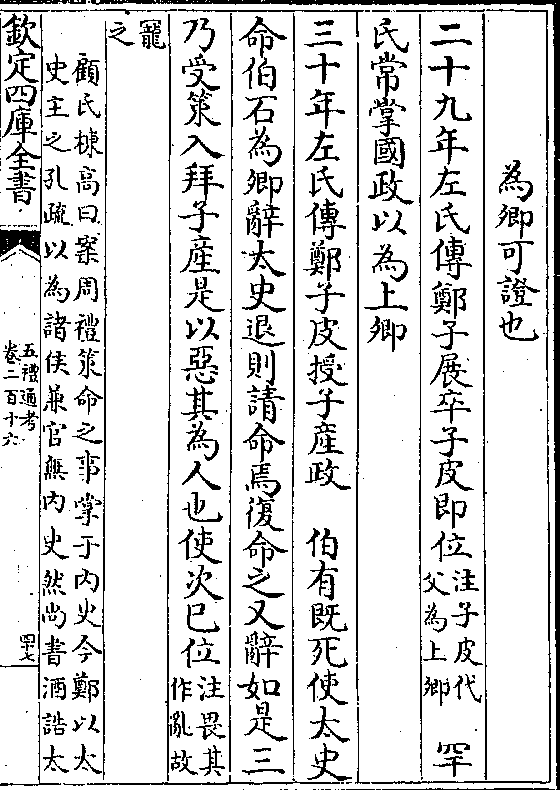 為卿可證也
二十九年左氏傳鄭子展卒子皮即位注子皮代父為上卿 罕
氏常掌國政以為上卿
三十年左氏傳鄭子皮授子產政 伯有既死使太史
命伯石為卿辭太史退則請命焉復命之又辭如是三
乃受策入拜子產是以惡其為人也使次已位注畏其作亂故
寵之
顧氏棟高曰案周禮策命之事掌于內史今鄭以太
史主之孔疏以為諸侯兼官無內史然尚書酒誥太
欽定四庫全書
五禮通考
卷二百十六
四十七